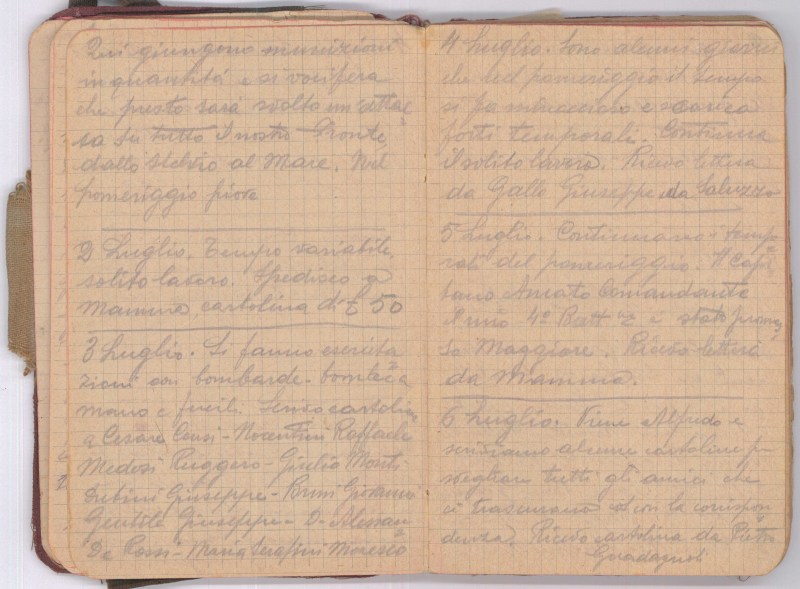 Qui giungono munizioni
in quantità e si vocifera
che presto sarà svolta un'offen
sa su tutto il nostro Fronte
dallo Stelvio al Mare. Nel
pomeriggio piove
2 Luglio. Tempo variabile,
solito lavoro. Spedisco a
Mamma cartolina di £ 50
3 Luglio. Si fanno esercita
zioni con bombarde - bombe a
mano e fucili. Scrivo cartoline
a Cesare Censi - Nocentini Raffaele
Medosi Ruggero - Giulio Monti
Giuseppe - Bruni Giovanni
Gentile Giuseppe - D'Alessan
De Rossi - Maria Serafini
4 Luglio. Sono alcuni giorni
che nel pomeriggio il tempo
si fa minaccioso e scarica
forti temporali. Continua
il solito lavoro. Ricevo lettera
da Gallo Giuseppe da Saluzzo
5 Luglio. Continuano i tempo
rali del pomeriggio. Il Capi
tano Amato Comandante
il mio 4º Batt ne è stato promos
so Maggiore. Ricevo lettera
da Mamma.
6 Luglio. Viene Alfredo e
scriviamo alcune cartoline per
svegliare tutti gli amici che
ci trascurano con la corrispon
denza. Ricevo cartolina da Pietro
Guadagnoli